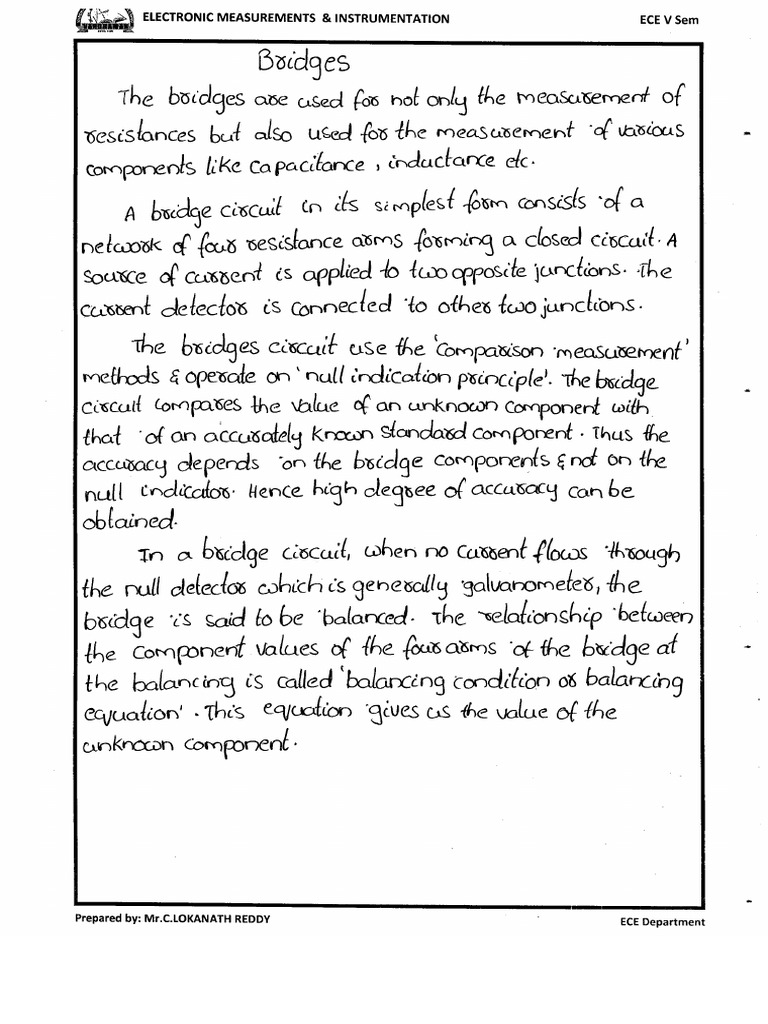 ELECTRONIC MEASUREMENTS & INSTRUMENTATION
ECE V Sem
Bridges
The bridges are used for not only the measurement of
resistances but also used for the measurement of various
components like capacitance, inductance etc.
A bridge circuit in its simplest form consists of a
network of four resistance arms forming a closed circuit. A
source of current is applied to two opposite junctions. The
current detector is connected to other two junctions.
The bridges circuit use the 'comparison measurement'
methods & operate on 'null indication principle'. The bridge
circuit compares the value of an unknown component with
that of an accurately known standard component. Thus the
accuracy depends on the bridge components & not on the
null indicator. Hence high degree of accuracy can be
obtained.
In a bridge circuit, when no current flows through
the null detector which is generally galvanometer, the
bridge is said to be balanced. The relationship between
the component values of the four arms of the bridge at
the balancing is called 'balancing condition or balancing
equation'. This equation gives us the value of the
unknown component.
Prepared by: Mr.C.LOKANATH REDDY
ECE Department